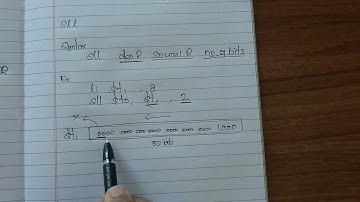 sll
Syntax
sll desR sourceR no.of bits
Ex
li $t1, 8
sll $t0, $t1, 2
$t1 0000 0000 0000 0000 0000 0000 0000 1000
32 bits